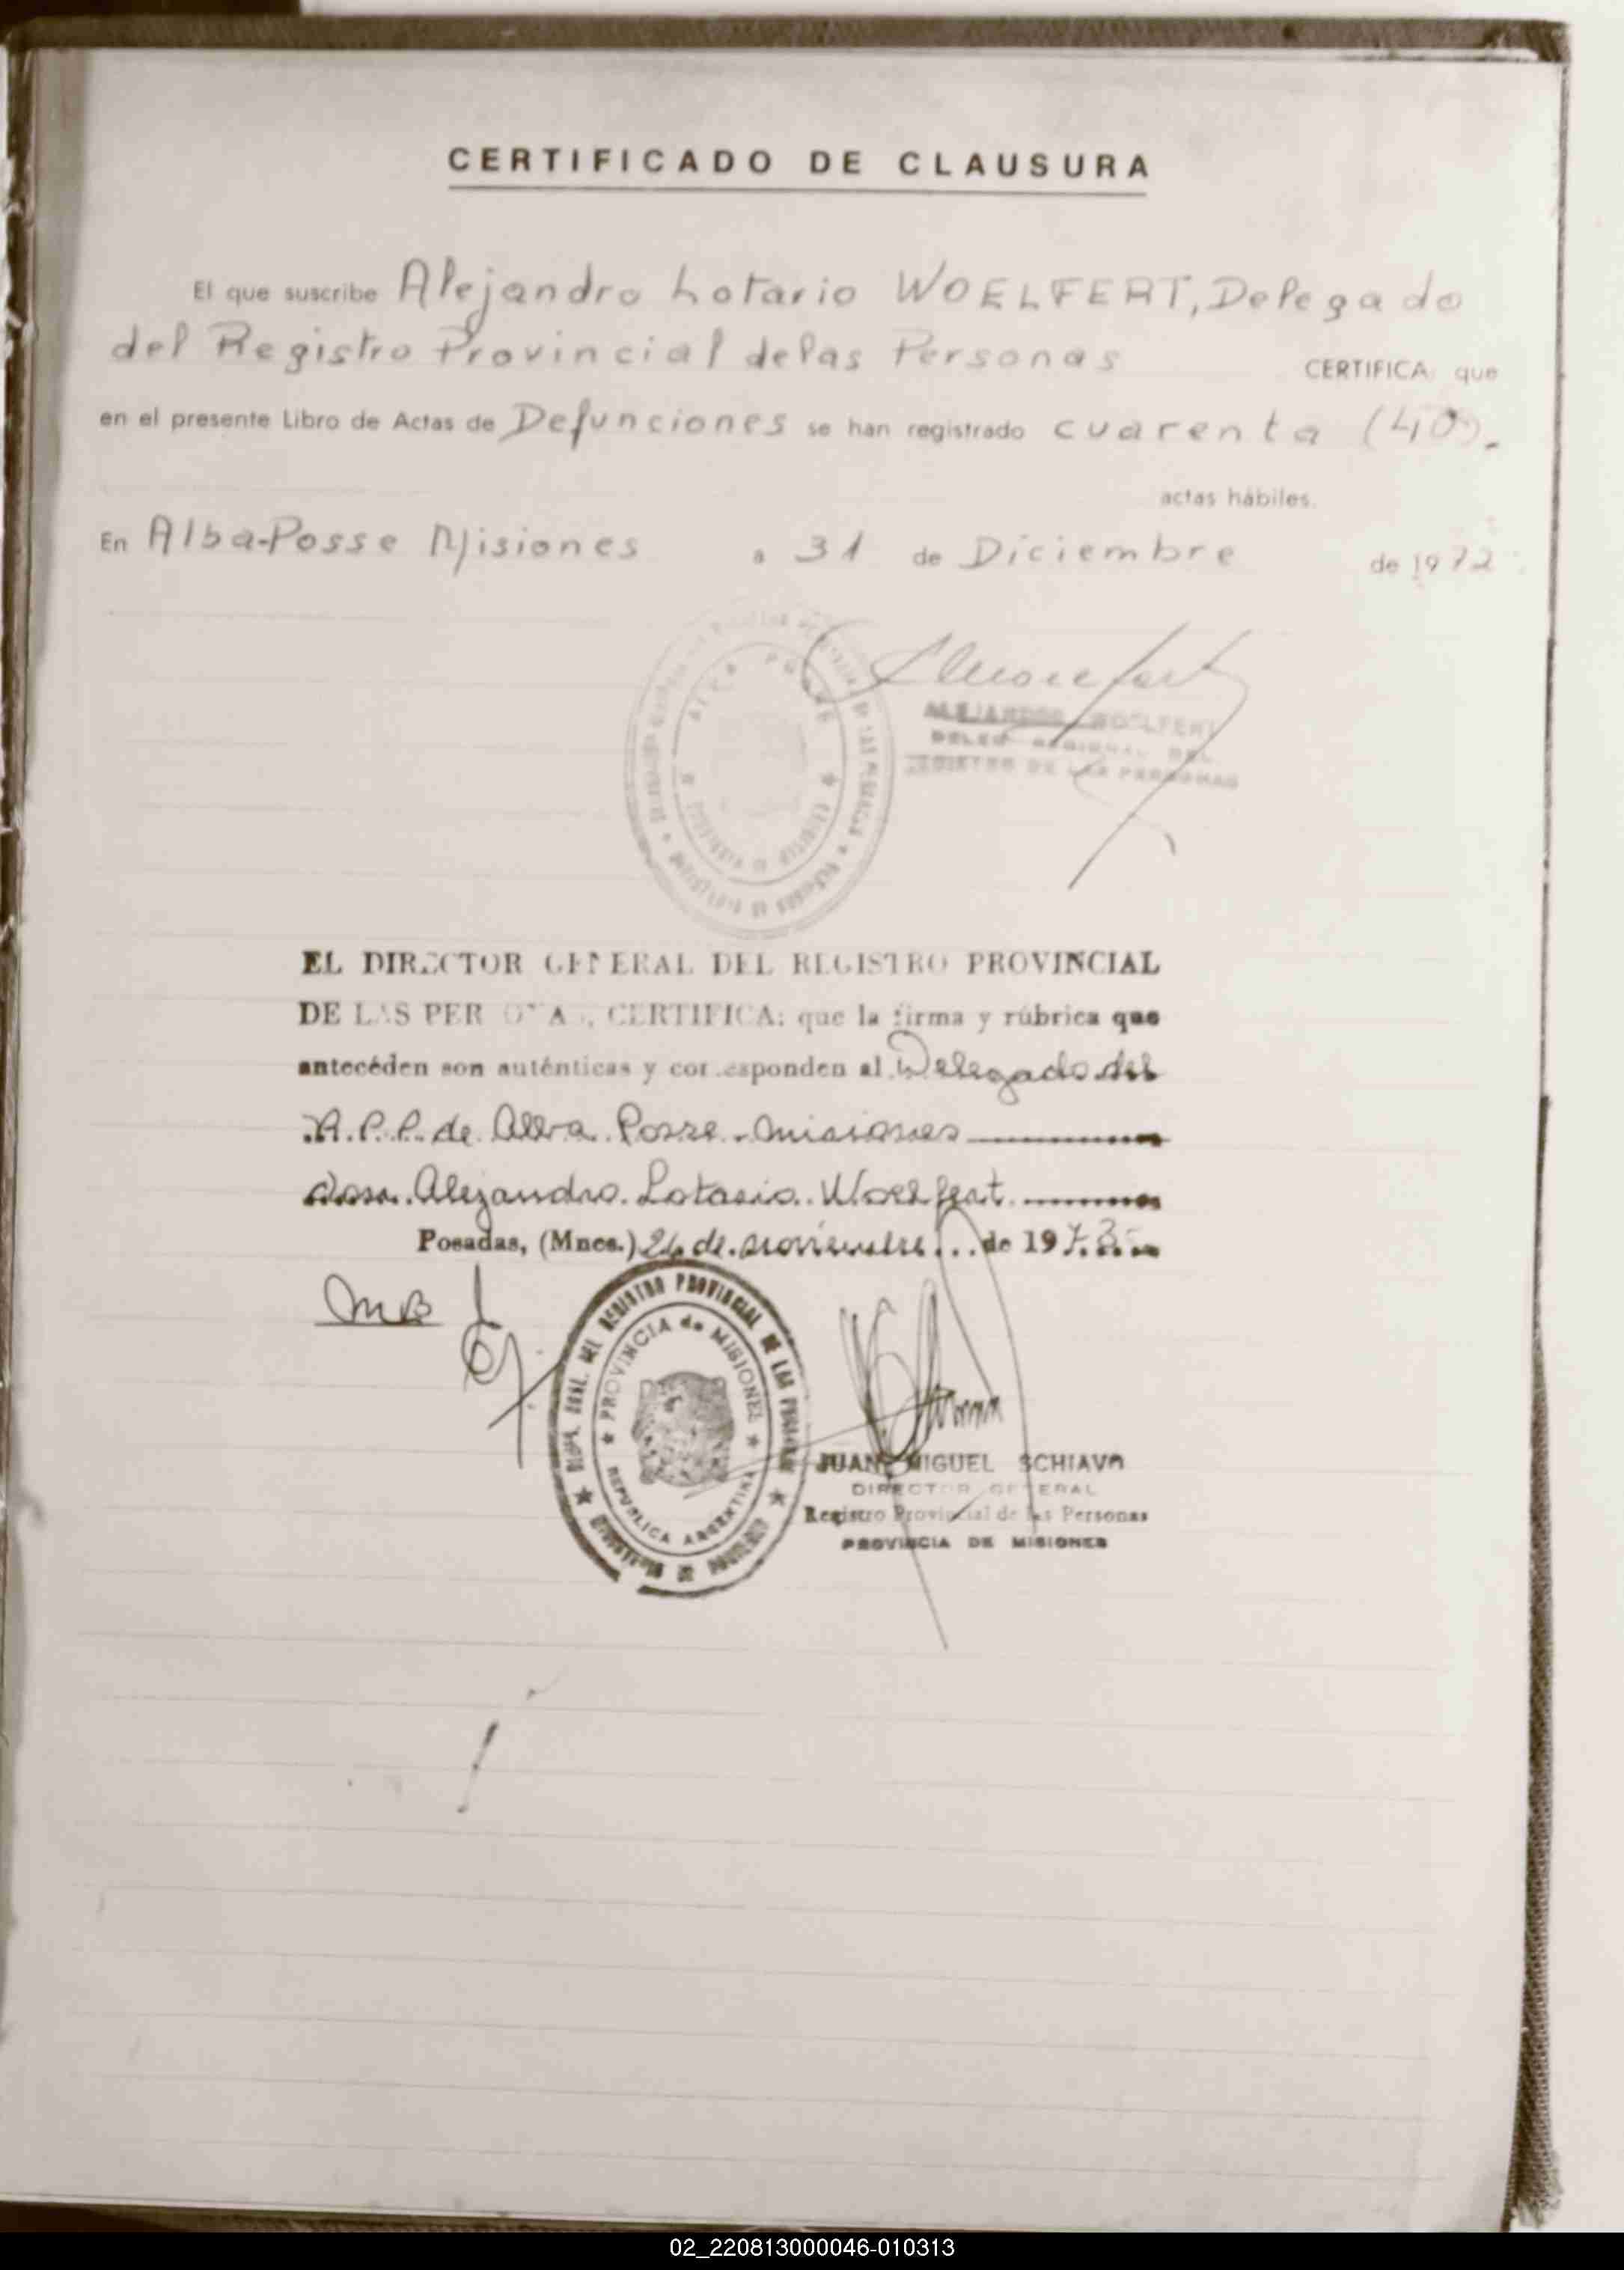 CERTIFICADO DE CLAUSURA
El que suscribe Alejandro Lotario WOELFERT, Delegado
del Registro Provincial de las Personas CERTIFICA que
en el presente Libro de Actas de Defunciones se han registrado cuarenta (40).
actas hábiles.
En Alba-Posse Misiones a 31 de Diciembre de 1972
ALEJANDRO WOELFERT
REGISTRO DE LAS PERSONAS
EL DIRECTOR GENERAL DEL REGISTRO PROVINCIAL
DE LAS PERSONAS, CERTIFICA: que la firma y rúbrica que
antecéden son auténticas y corresponden al Delegado del
R.P.P. de Alba Posse - Misiones
don Alejandro Lotario Woelfert
Posadas, (Mnes.) 26 de noviembre de 1973
MB
REGISTRO PROVINCIAL DE LAS PERSONAS
PROVINCIA de MISIONES
REPUBLICA ARGENTINA
MINISTERIO DE GOBIERNO
JUAN MIGUEL SCHIAVO
DIRECTOR GENERAL
Registro Provincial de las Personas
PROVINCIA DE MISIONES
02_220813000046-010313